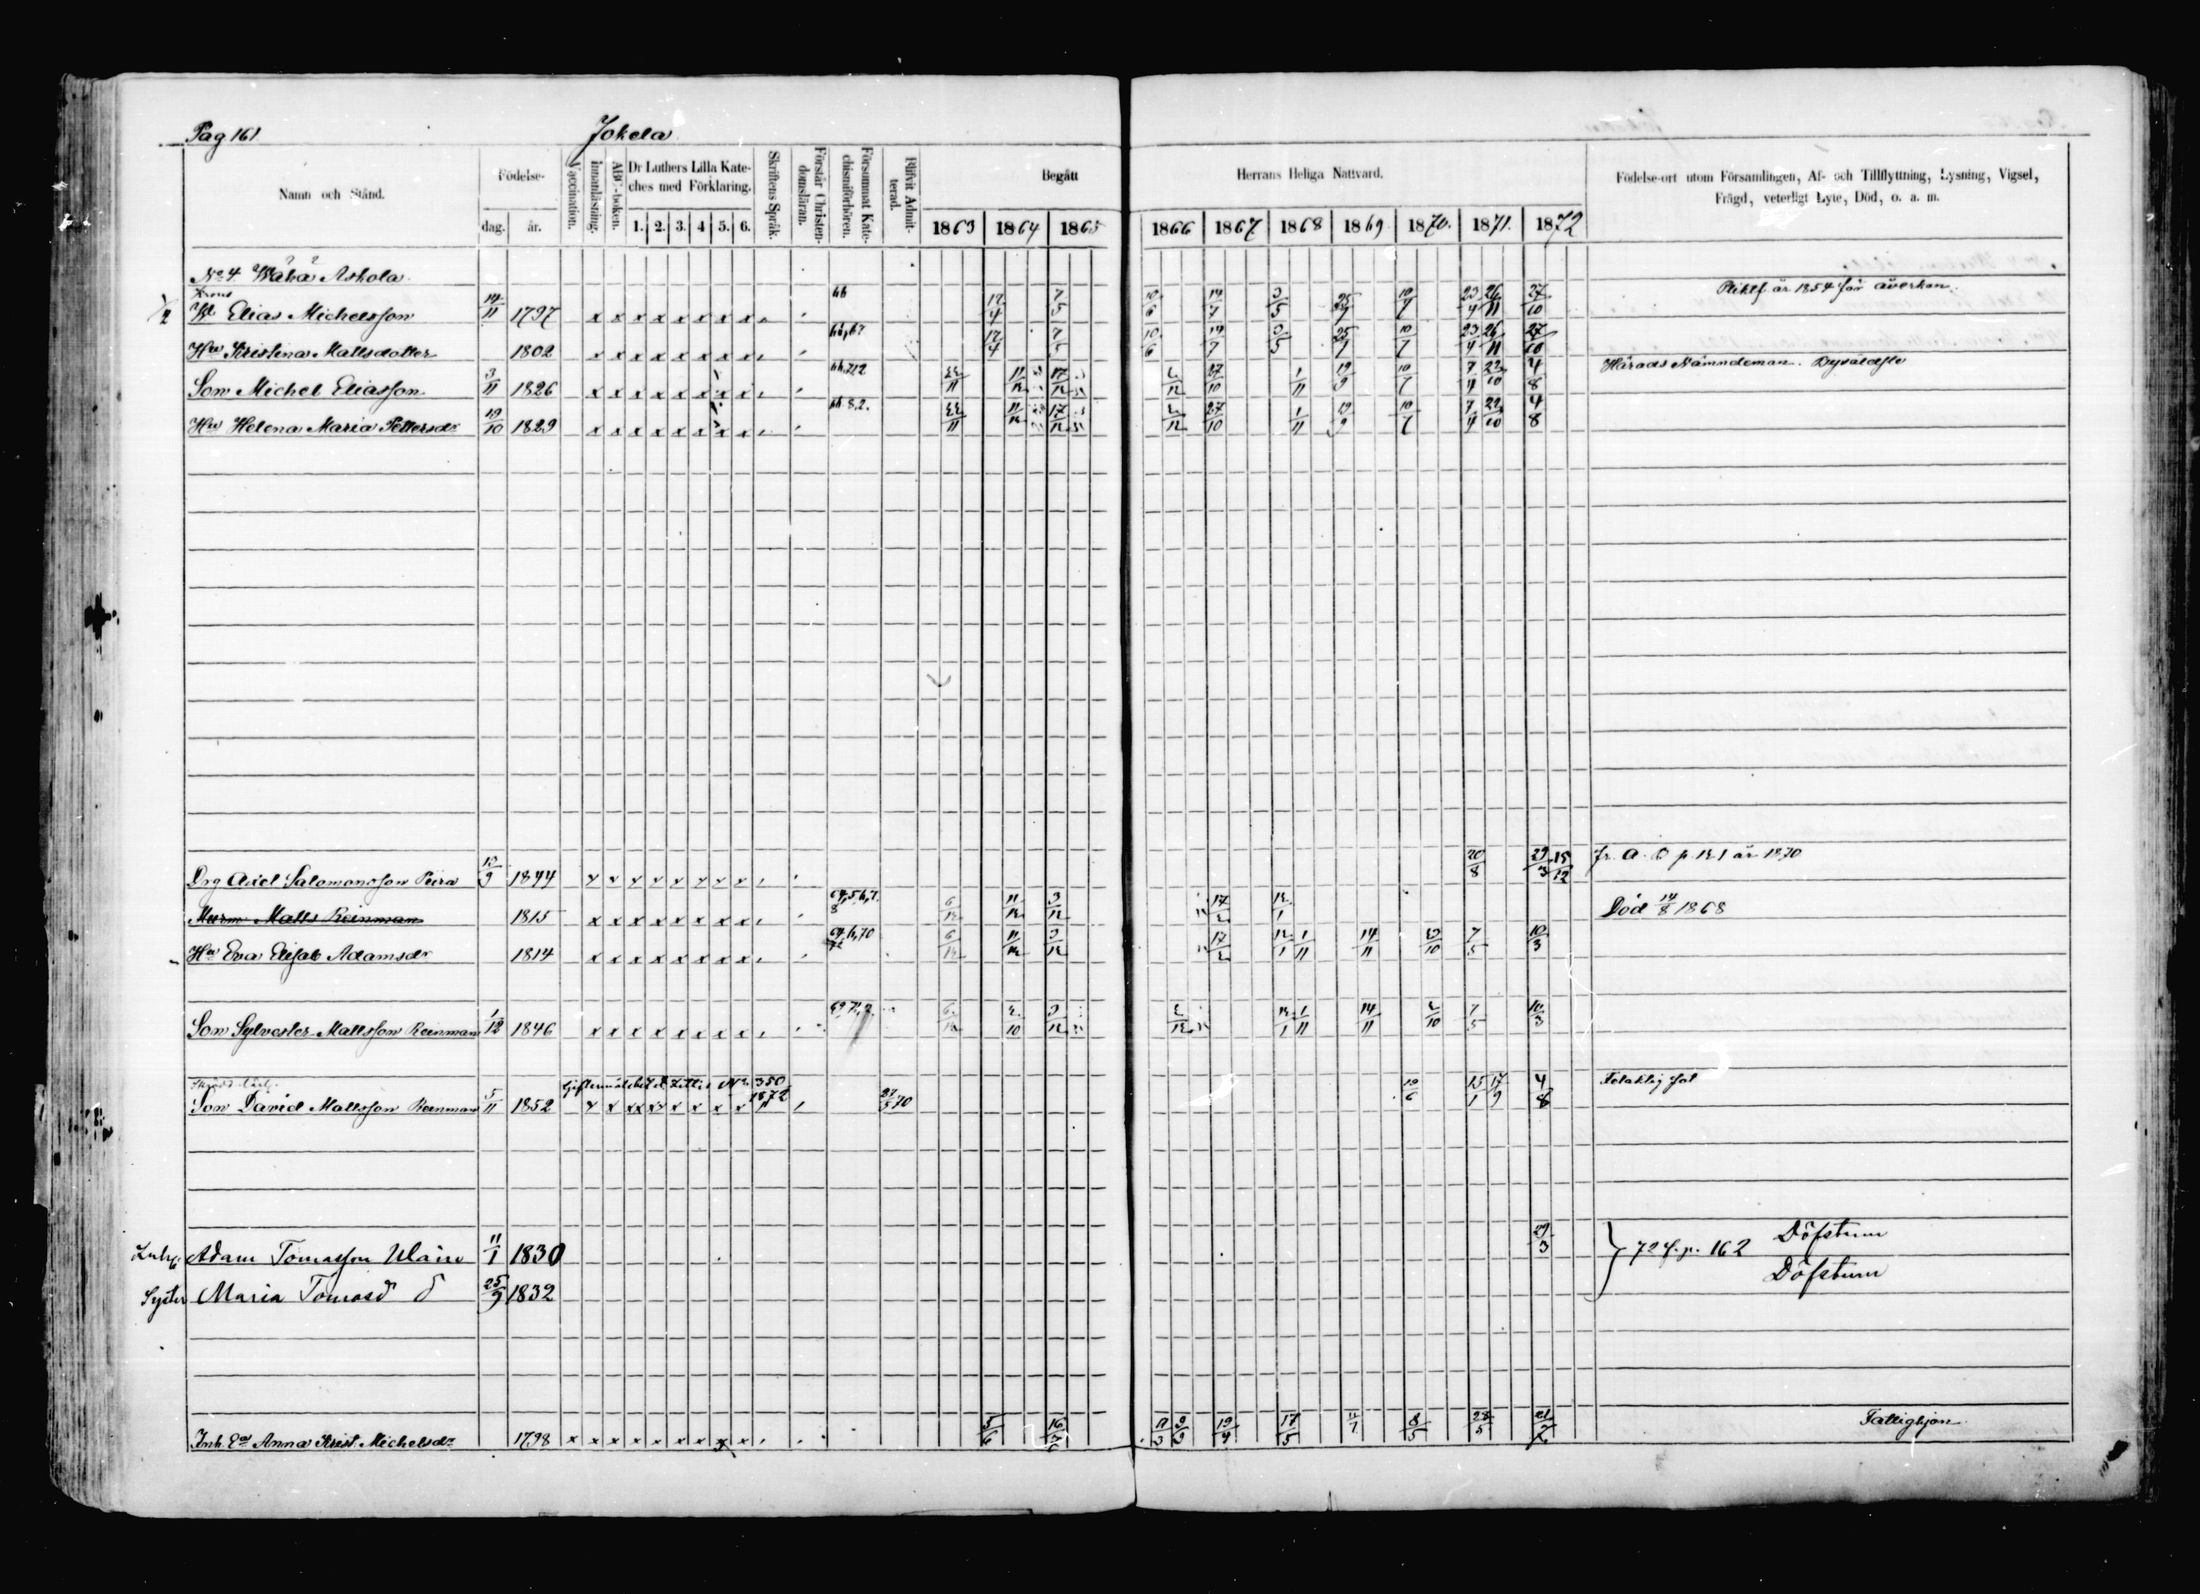 Pag 161 Jokela
Namn och Stånd. Födelse- dag. år. Vaccination. Innanläsning. ABC-boken. Dr Luthers Lilla Kateches med Förklaring. 1. 2. 3. 4 5. 6. Skriftens Språk. Förstår Christendomsläran. Försummat Katechismiförhören. Blifvit Admitterad. Begått Herrans Heliga Nattvard. 1863 1864 1865 1866 1867 1868 1869 1870. 1871. 1872 Födelse-ort utom Församlingen, Af- och Tillflyttning, Lysning, Vigsel, Frägd, veterligt Lyte, Död, o. a. m.
No 4 Wähä Askola
Elias Michelsson 14/11 1797 x x x x x x x x 66 17/4 7/5 10/6 14/7 3/5 25/7 10/7 23/4 26/11 27/10 Pliktf. år 1854 för åverkan.
Hu Kristina Mattsdotter 1802 x x x x x x x x 66,67 17/4 7/5 10/6 14/7 3/5 25/7 10/7 23/4 26/11 27/10
Son Michel Eliasson 3/11 1826 x x x x x x x x 11/12 17/12 27/10 1/11 19/9 10/7 7/4 22/10 4/8 Härads Nämndeman.
Hu Helena Maria Pettersdr 19/10 1829 x x x x x x x x 11/12 17/12 27/10 1/11 19/9 10/7 7/4 22/10 4/8
Drg Axel Salomonsson Peira 13/9 1844 x x x x x x x x 20/8 29/3 15/12 fr. A. B p. 121 år 1870
Murm Matts Reinman 1815 x x x x x x x x 6/12 11/12 3/12 17/2 12/1 Död 14/8 1868
Hu Eva Elisab Adamsdr 1814 x x x x x x x x 6/12 11/12 3/12 17/2 12/1 1/11 14/11 23/10 7/5 10/3
Son Sylvester Mattsson Reinman 1/12 1846 x x x x x x x x 6/12 2/10 3/12 2/12 12/1 1/11 14/11 2/10 7/5 10/3
Son David Mattsson Reinman 5/11 1852 x x x x x x x x No 350 1872 70 19/6 15/1 17/9 4/8
Adam Tomasson Ulain 11/1 1830 29/3 } 72 f. p. 162 Döfstum
Syster Maria Tomasd 25/9 1832 Döfstum
Inh. Ea Anna Krist. Michelsdr 1798 x x x x x x x x 5/6 16/6 19/4 17/5 11/7 8/5 28/5 21/7 Fattighjon.